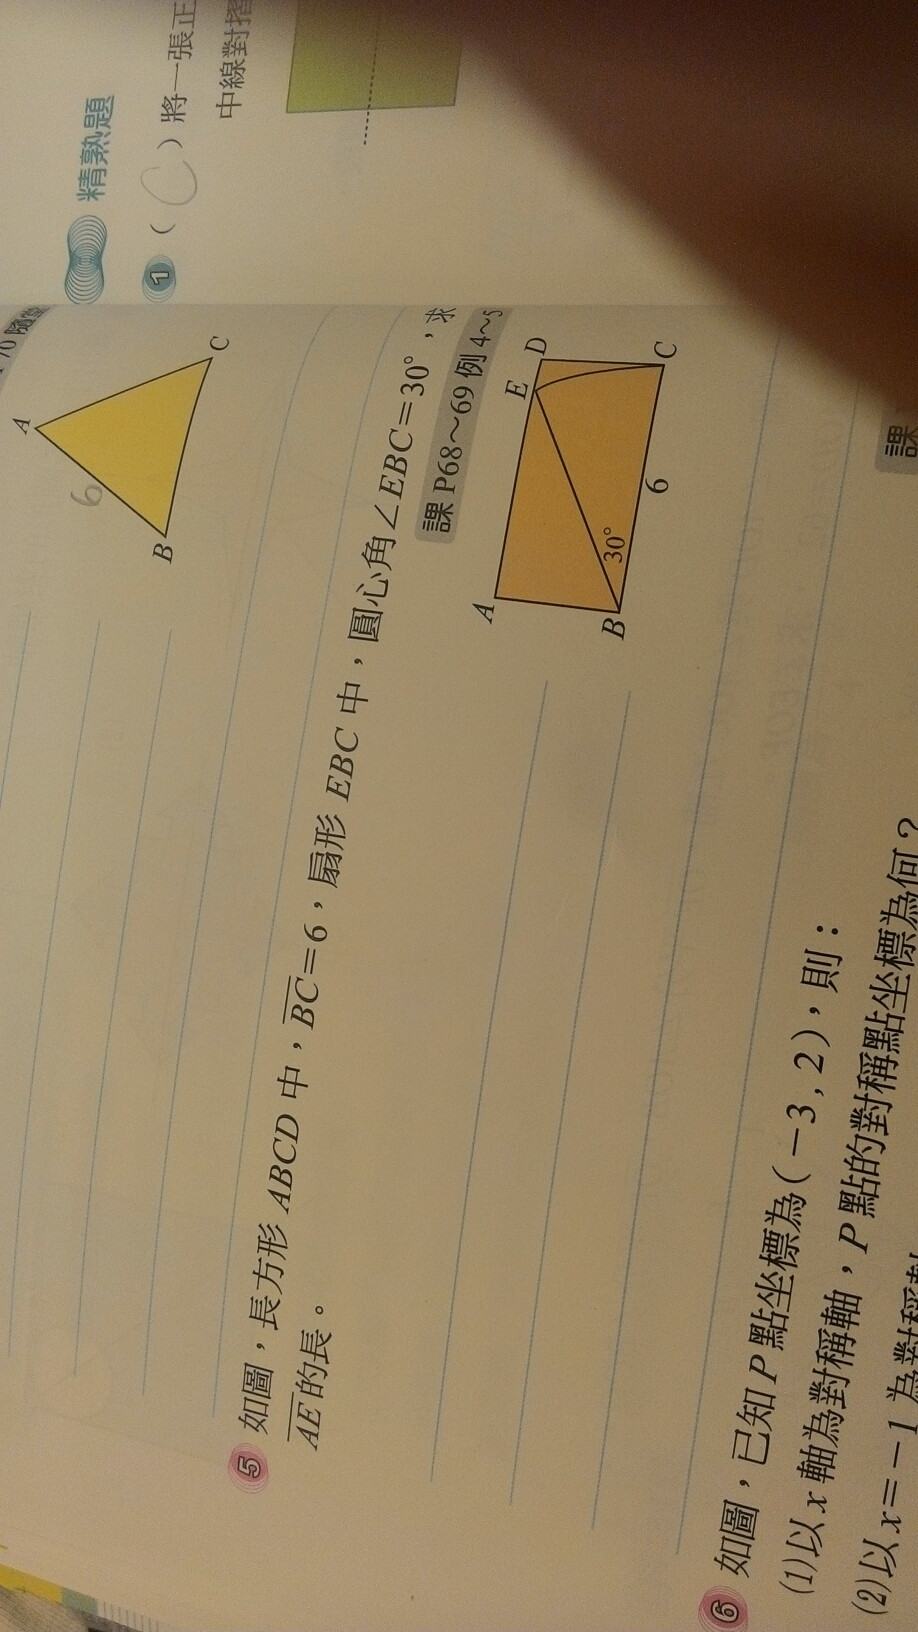 A
6
B
C
5 如圖，長方形 ABCD 中，BC=6，扇形 EBC 中，圓心角∠EBC=30°，求
AE的長。
課 P68～69 例 4～5
A
E
D
B
30°
C
6
6 如圖，已知 P 點坐標為(－3 , 2)，則：
(1)以 x 軸為對稱軸，P 點的對稱點坐標為何？
(2)以 x=－1 為對稱
課
精熟題
1 ( C ) 將一張正
中線對摺